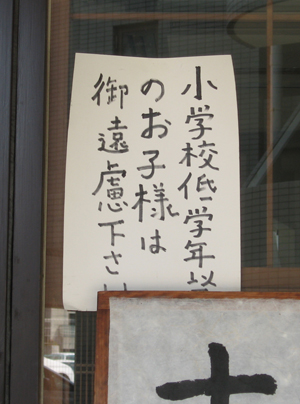 小学校低学年以
のお子様は
御遠慮下さい